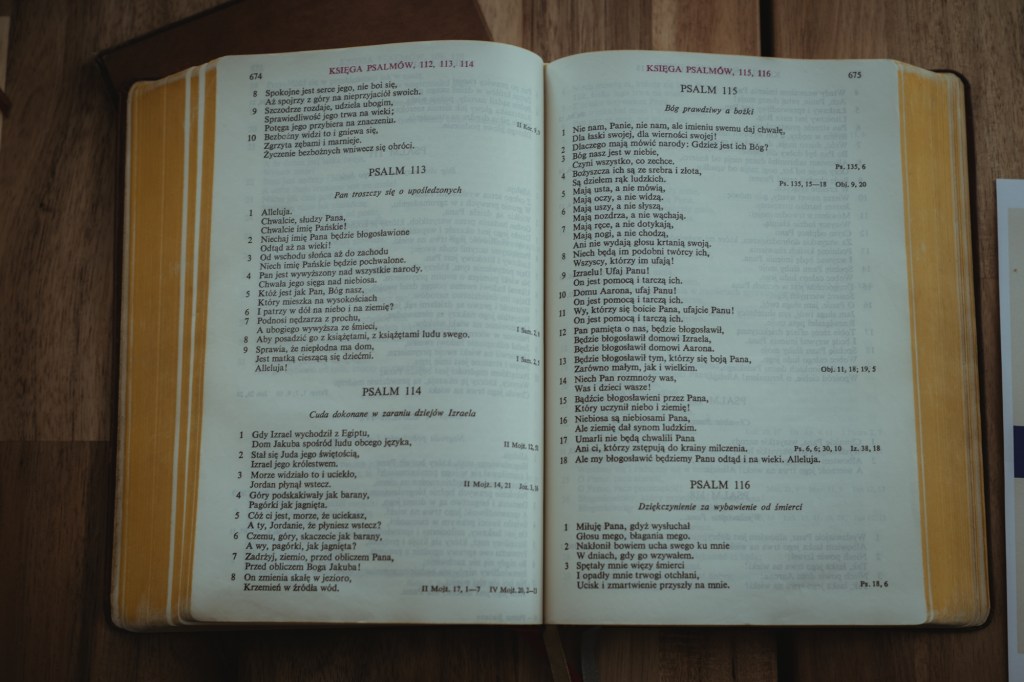 674
KSIĘGA PSALMÓW, 112, 113, 114
8 Spokojne jest serce jego, nie boi się,
Aż spojrzy z góry na nieprzyjaciół swoich.
9 Szczodrze rozdaje, udziela ubogim,
Sprawiedliwość jego trwa na wieki;
Potęga jego przybiera na znaczeniu. II Kor.
10 Bezbożny widzi to i gniewa się,
Zgrzyta zębami i marnieje.
Życzenie bezbożnych wniwecz się obróci.
PSALM 113
Pan troszczy się o upośledzonych
1 Alleluja.
Chwalcie, słudzy Pana,
Chwalcie imię Pańskie!
2 Niechaj imię Pana będzie błogosławione
Odtąd aż na wieki!
3 Od wschodu słońca aż do zachodu
Niech imię Pańskie będzie pochwalone.
4 Pan jest wywyższony nad wszystkie narody,
Chwała jego sięga nad niebiosa.
5 Któż jest jak Pan, Bóg nasz,
Który mieszka na wysokościach
6 I patrzy w dół na niebo i na ziemię?
7 Podnosi nędzarza z prochu,
A ubogiego wywyższa ze śmieci,
8 Aby posadzić go z książętami, z książętami ludu swego. I Sam. 2,
9 Sprawia, że niepłodna ma dom,
Jest matką cieszącą się dziećmi. I Sam. 2,
Alleluja!
PSALM 114
Cuda dokonane w zaraniu dziejów Izraela
1 Gdy Izrael wychodził z Egiptu,
Dom Jakuba spośród ludu obcego języka, II Mojż. 12,
2 Stał się Juda jego świętością,
Izrael jego królestwem.
3 Morze widziało to i uciekło,
Jordan płynął wstecz. II Mojż. 14, 21 Joz. 3,
4 Góry podskakiwały jak barany,
Pagórki jak jagnięta.
5 Cóż ci jest, morze, że uciekasz,
A ty, Jordanie, że płyniesz wstecz?
6 Czemu, góry, skaczecie jak barany,
A wy, pagórki, jak jagnięta?
7 Zadrżyj, ziemio, przed obliczem Pana,
Przed obliczem Boga Jakuba!
8 On zmienia skałę w jezioro,
Krzemień w źródła wód. II Mojż. 17, 1—7 IV Mojż. 20,
KSIĘGA PSALMÓW, 115, 116
675
PSALM 115
Bóg prawdziwy a bożki
1 Nie nam, Panie, nie nam, ale imieniu swemu daj chwałę,
Dla łaski swojej, dla wierności swojej!
2 Dlaczego mają mówić narody: Gdzież jest ich Bóg?
3 Bóg nasz jest w niebie,
Czyni wszystko, co zechce. Ps. 135, 6
4 Bożyszcza ich są ze srebra i złota,
Są dziełem rąk ludzkich. Ps. 135, 15—18 Obj. 9, 20
5 Mają usta, a nie mówią,
Mają oczy, a nie widzą.
6 Mają uszy, a nie słyszą,
Mają nozdrza, a nie wąchają.
7 Mają ręce, a nie dotykają,
Mają nogi, a nie chodzą,
Ani nie wydają głosu krtanią swoją.
8 Niech będą im podobni twórcy ich,
Wszyscy, którzy im ufają!
9 Izraelu! Ufaj Panu!
On jest pomocą i tarczą ich.
10 Domu Aarona, ufaj Panu!
On jest pomocą i tarczą ich.
11 Wy, którzy się boicie Pana, ufajcie Panu!
On jest pomocą i tarczą ich.
12 Pan pamięta o nas, będzie błogosławił,
Będzie błogosławił domowi Izraela,
Będzie błogosławił domowi Aarona.
13 Będzie błogosławił tym, którzy się boją Pana,
Zarówno małym, jak i wielkim. Obj. 11, 18; 19, 5
14 Niech Pan rozmnoży was,
Was i dzieci wasze!
15 Bądźcie błogosławieni przez Pana,
Który uczynił niebo i ziemię!
16 Niebiosa są niebiosami Pana,
Ale ziemię dał synom ludzkim.
17 Umarli nie będą chwalili Pana
Ani ci, którzy zstępują do krainy milczenia. Ps. 6, 6; 30, 10 Iz. 38, 18
18 Ale my błogosławić będziemy Panu odtąd i na wieki. Alleluja.
PSALM 116
Dziękczynienie za wybawienie od śmierci
1 Miłuję Pana, gdyż wysłuchał
Głosu mego, błagania mego.
2 Nakłonił bowiem ucha swego ku mnie
W dniach, gdy go wzywałem.
3 Spętały mnie więzy śmierci
I opadły mnie trwogi otchłani,
Ucisk i zmartwienie przyszły na mnie. Ps. 18, 6